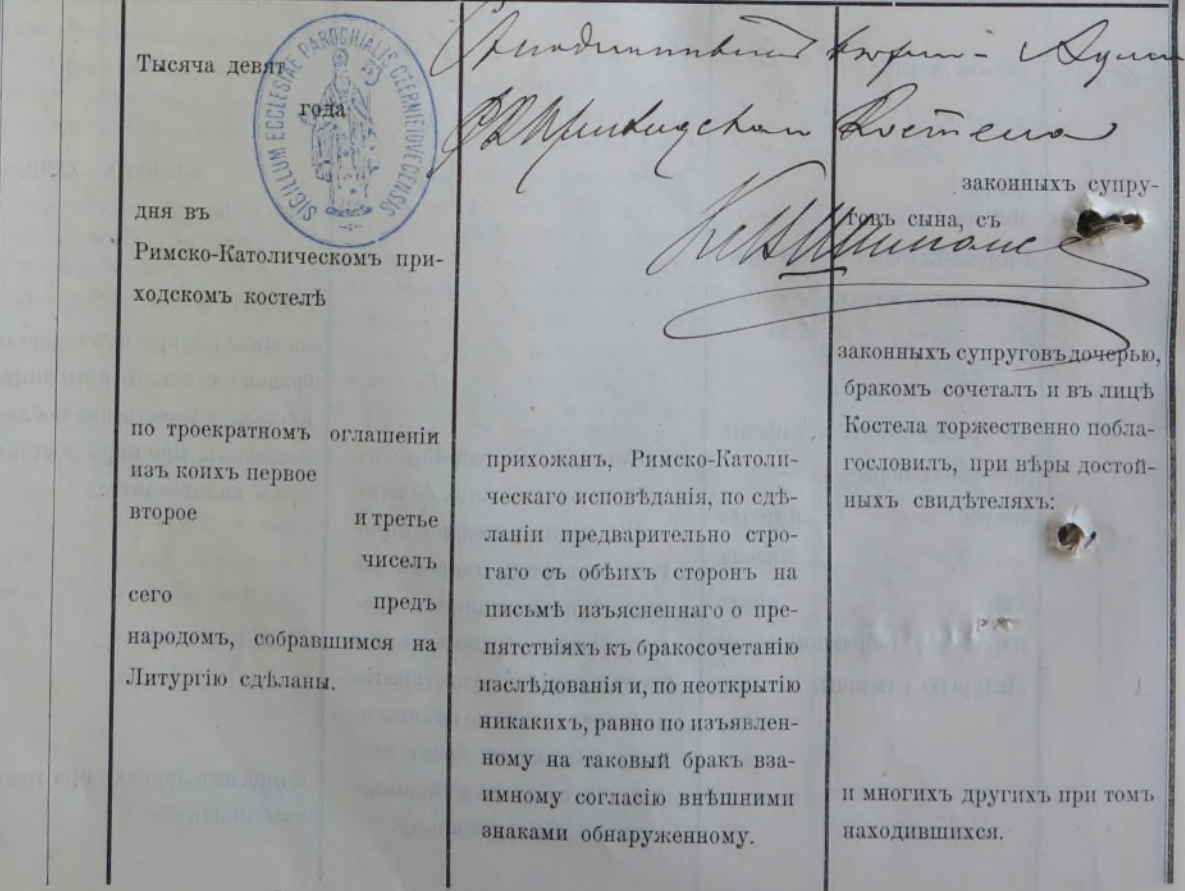 Тысяча девят
года
SIGILLUM ECCLESIAE PAROCHIALIS CZERNIEJOVECENSIS
дня въ
Римско-Католическомъ при-
ходскомъ костелѣ
по троекратномъ оглашеніи
изъ коихъ первое
второе и третье
чиселъ
сего предъ
народомъ, собравшимся на
Литургію сдѣланы.
Костела
прихожан, Римско-Католи-
ческаго исповѣданія, по сдѣ-
ланіи предварительно стро-
гаго съ обѣихъ сторонъ на
письмѣ изъясненнаго о пре-
пятствіяхъ къ бракосочетанію
изслѣдованія и, по неоткрытію
никакихъ, равно по изъявлен-
ному на таковый бракъ вза-
имному согласію внѣшними
знаками обнаруженному.
законныхъ супру-
говъ сына, съ
законныхъ супруговъ дочерью,
бракомъ сочеталъ и въ лицѣ
Костела торжественно побла-
гословилъ, при вѣры достой-
ныхъ свидѣтеляхъ:
и многихъ другихъ при томъ
находившихся.